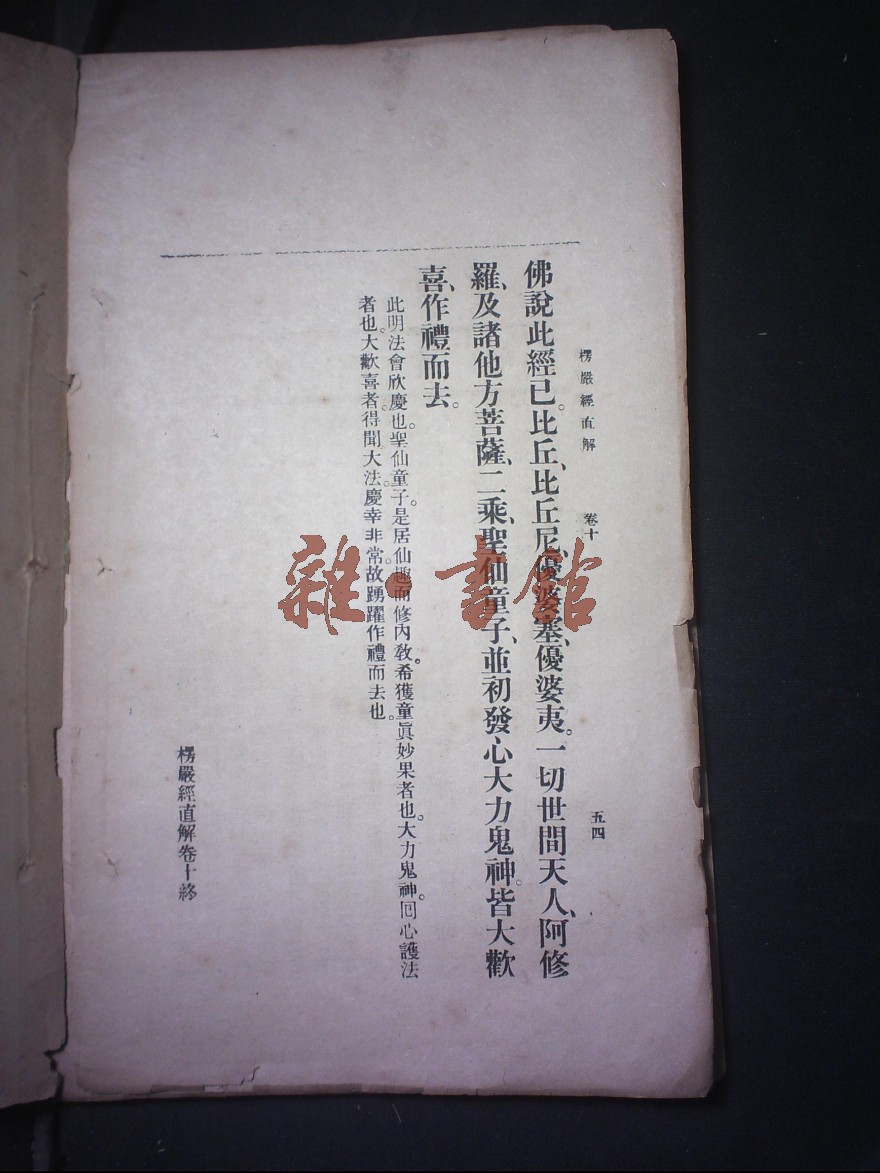 楞嚴經直解 卷十 五四
佛說此經已。比丘、比丘尼、優婆塞、優婆夷。一切世間天人、阿修
羅、及諸他方菩薩、二乘、聖仙童子、並初發心大力鬼神。皆大歡
喜、作禮而去。
此明法會欣慶也。聖仙童子。是居仙趣而修內敎。希獲童眞妙果者也。大力鬼神。回心護法
者也。大歡喜者。得聞大法。慶幸非常。故踴躍作禮而去也。
楞嚴經直解卷十終
雜·書館